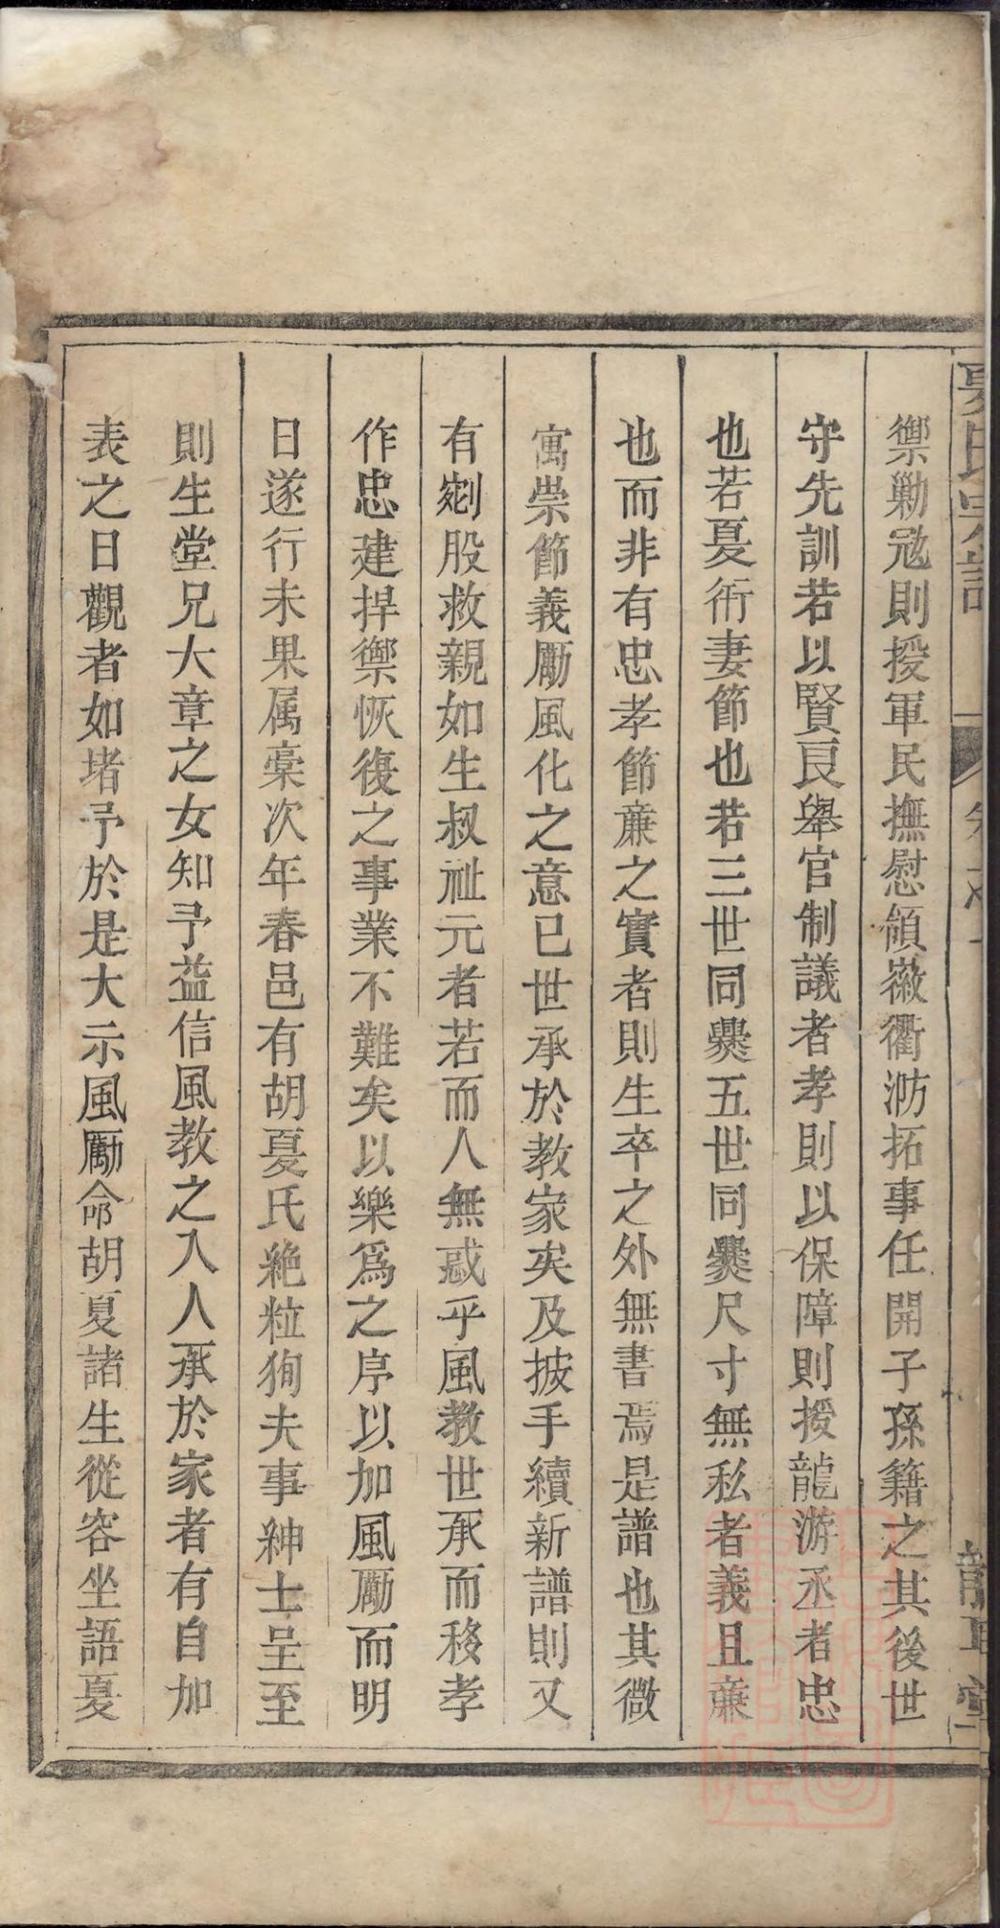 禦勦冦則授軍民撫慰領薇衢汸拓事任開子孫籍之其後世
守先訓若以賢良舉官制議者孝則以保障則授龍游丞者忠
也若憂術妻節也若三世同爨五世同爨尺寸無私者義且亷
也而非有忠孝節亷之實者則生卒之外無書焉是譜也其微
寓崇節義勵風化之意已世承於教家矣及披手續新譜則又
有剜股救親如生叔祉元者若而人無惑乎風教世承而移孝
作忠建捍禦恢復之事業不難矣以樂爲之序以加風勵而明
日遂行未果属稾次年春邑有胡夏氏絶粒狥夫事紳士呈至
則生堂兄大章之女知予益信風教之入人承於家者有自加
表之日觀者如堵予於是大示風勵命胡夏諸生從容坐語夏